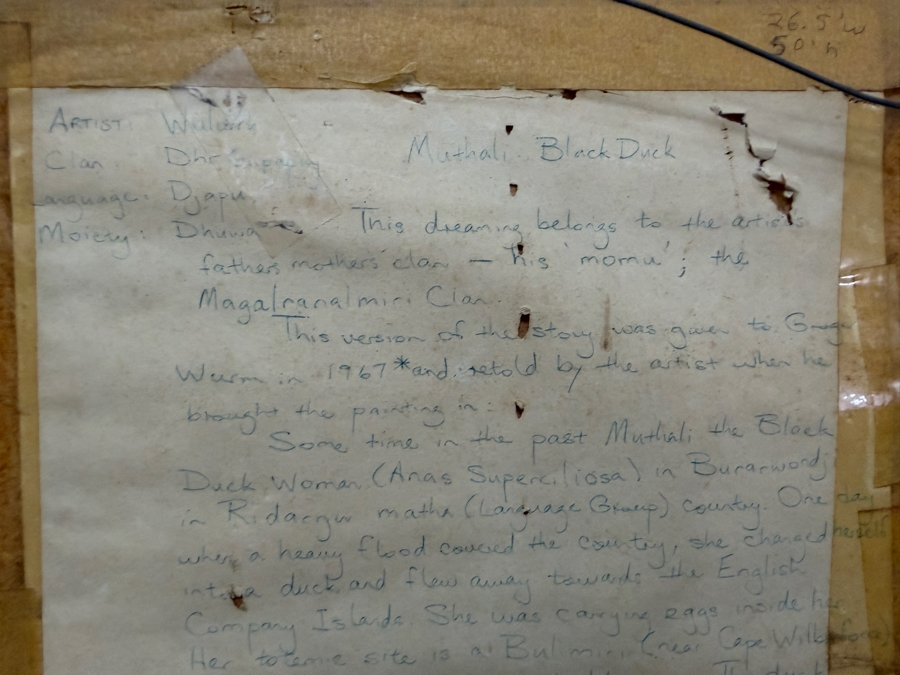 26.5"w
50"h
ARTIST: 
Clan:
Language: Djapu
Moiety: Dhuwa
Muthali: Black Duck
This dreaming belongs to the artists
fathers mothers clan — his 'momu'; the
Clan.
This version of the story was given to
Wurm in 1967* and retold by the artist when he
brought the painting in:
Some time in the past Muthali the Black
Duck Woman (Anas Superciliosa) in
in matha (Language Group) country. One day
when a heavy flood covered the country, she changed herself
into a duck and flew away towards the English
Company Islands. She was carrying eggs inside her
Her totemic site is at (near Cape Wilberforce)